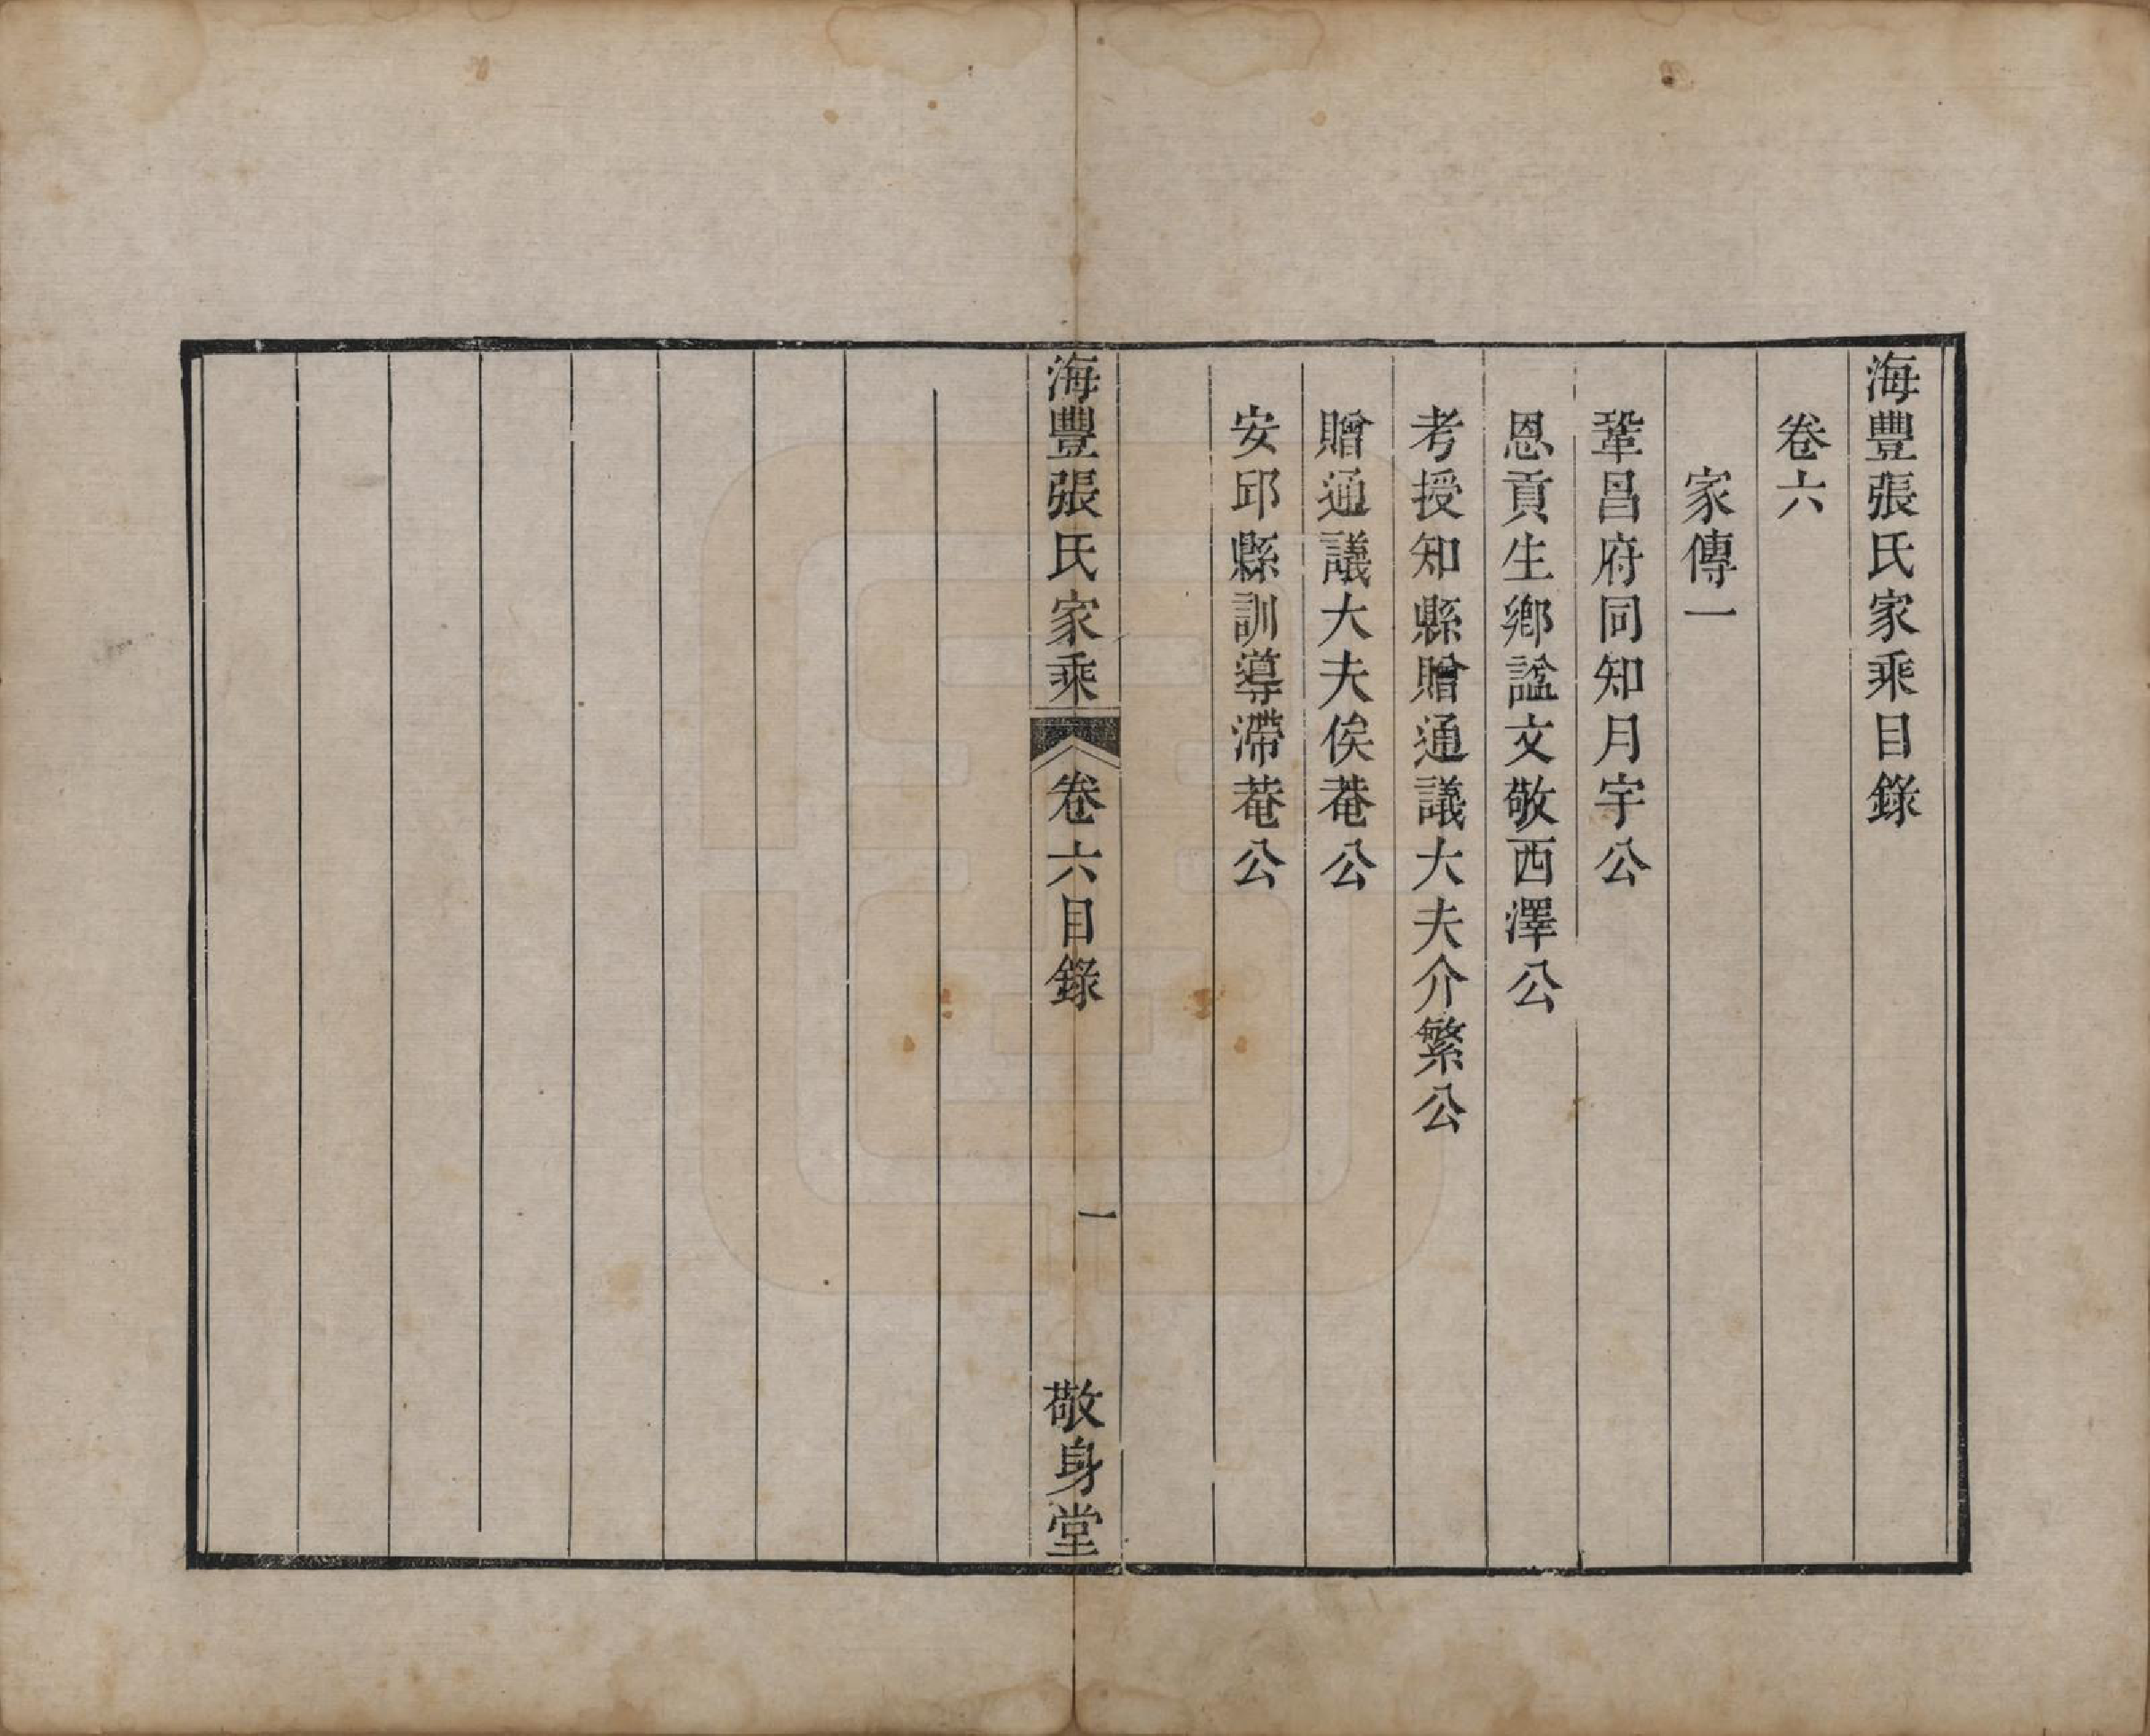 海豐張氏家乘目錄
卷六
家傳一
鞏昌府同知月宇公
恩貢生鄉諡文敬西澤公
考授知縣贈通議大夫介繁公
贈通議大夫俟菴公
安邱縣訓導滯菴公
海豐張氏家乘
卷六目錄
一
敬身堂